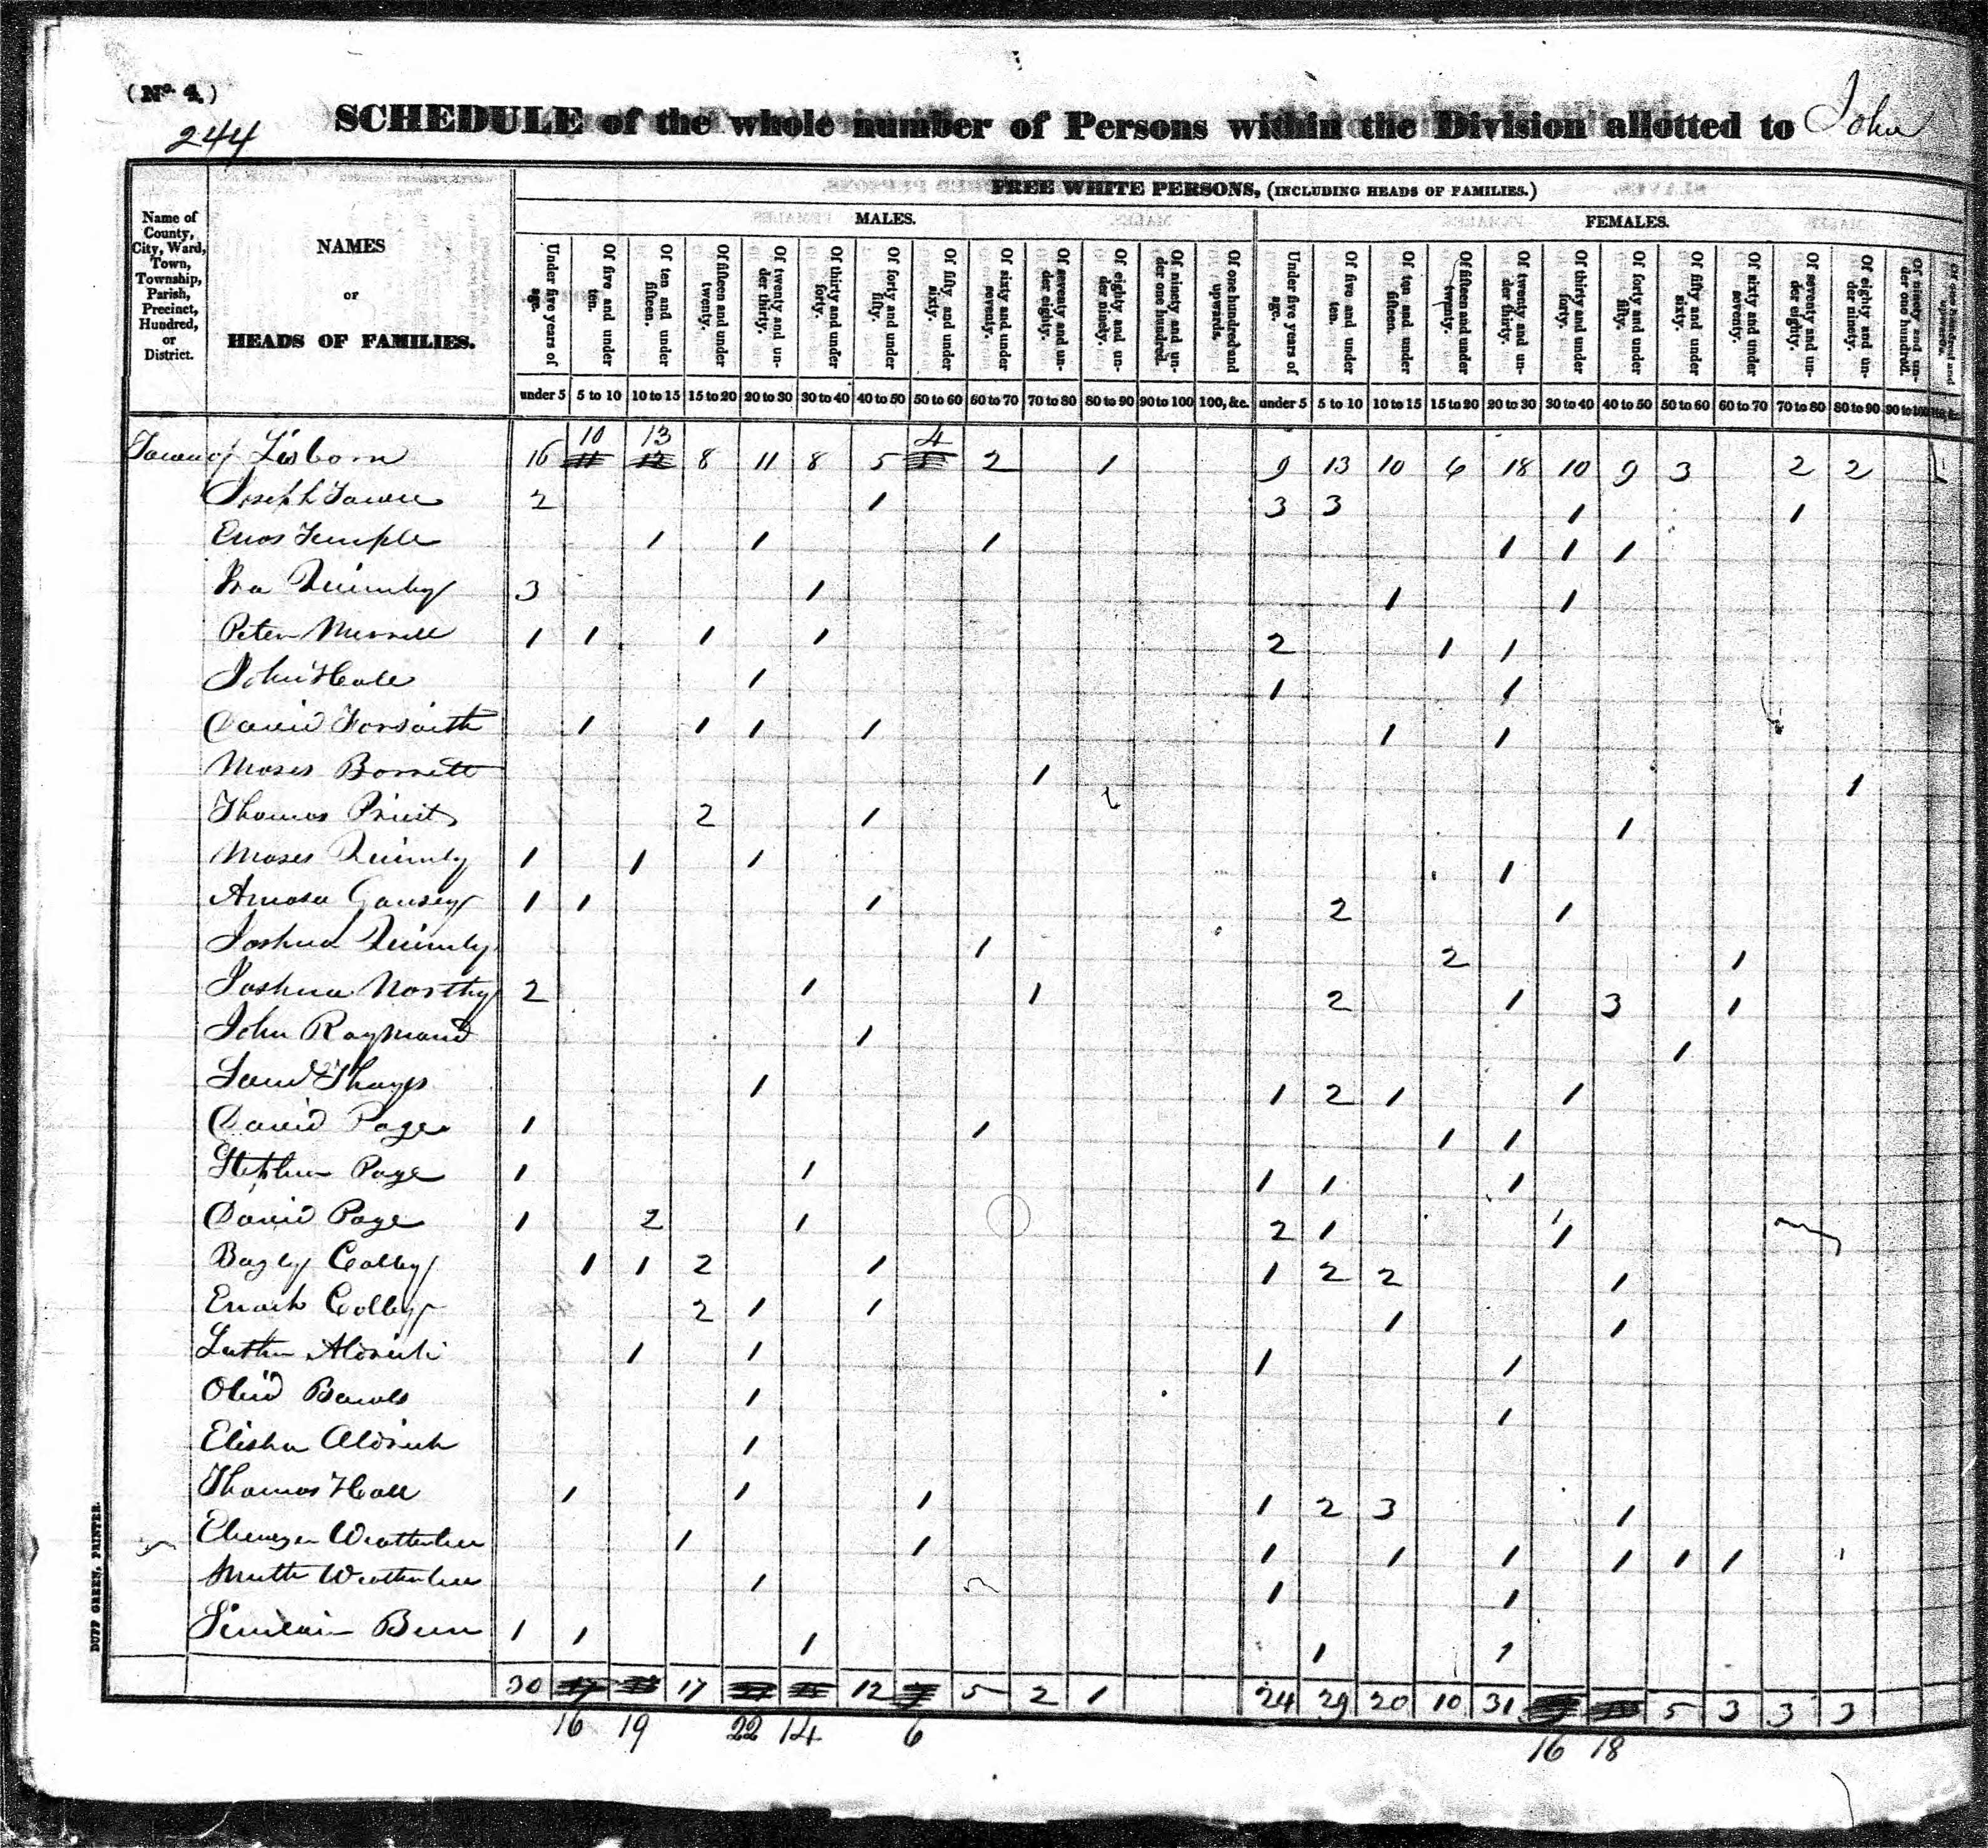 (No. 4.)
244
SCHEDULE of the whole number of Persons within the Division allotted to John
Name of County, City, Ward, Town, Township, Parish, Precinct, Hundred, or District.
NAMES
or
HEADS OF FAMILIES.
FREE WHITE PERSONS, (INCLUDING HEADS OF FAMILIES.)
MALES. FEMALES.
Under five years of age. Of five and under ten. Of ten and under fifteen. Of fifteen and under twenty. Of twenty and under thirty. Of thirty and under forty. Of forty and under fifty. Of fifty and under sixty. Of sixty and under seventy. Of seventy and under eighty. Of eighty and under ninety. Of ninety and under one hundred. Of one hundred and upwards. Under five years of age. Of five and under ten. Of ten and under fifteen. Of fifteen and under twenty. Of twenty and under thirty. Of thirty and under forty. Of forty and under fifty. Of fifty and under sixty. Of sixty and under seventy. Of seventy and under eighty. Of eighty and under ninety. Of ninety and under one hundred. Of one hundred and upwards.
under 5 5 to 10 10 to 15 15 to 20 20 to 30 30 to 40 40 to 50 50 to 60 60 to 70 70 to 80 80 to 90 90 to 100 100, &c. under 5 5 to 10 10 to 15 15 to 20 20 to 30 30 to 40 40 to 50 50 to 60 60 to 70 70 to 80 80 to 90 90 to 100
10 13 4
Town of Lisbon 16 8 11 8 5 2 1 9 13 10 6 18 10 9 3 2 2
Joseph 2 1 3 3 1 1
Enos Temple 1 1 1 1 1 1
Ira Quimby 3 1 1 1
Peter Merrill 1 1 1 1 2 1 1
John Hall 1 1 1
David Forsaith 1 1 1 1 1 1
Moses 1 1
Thomas Priest 2 1 1
Moses Quimby 1 1 1 1
Amasa 1 1 1 2 1
Joshua Quimby 1 2 1
Joshua Northy 2 1 1 2 1 3 1
John Raymond 1 1
1 1 2 1 1
David Page 1 1 1 1
Stephen Page 1 1 1 1 1
David Page 1 2 1 2 1 1
Bagley Colby 1 1 2 1 1 2 2 1
Enoch Colby 2 1 1 1 1
Luther Aldrich 1 1 1 1
1 1
Elisha Aldrich 1
Thomas Hall 1 1 1 1 2 3 1
Ebenezer Wetherbee 1 1 1 1 1 1 1 1
Wetherbee 1 1 1
1 1 1 1 1
30 17 12 5 2 1 24 29 20 10 31 5 3 3 3
16 19 22 14 6 16 18
DUFF GREEN, PRINTER.